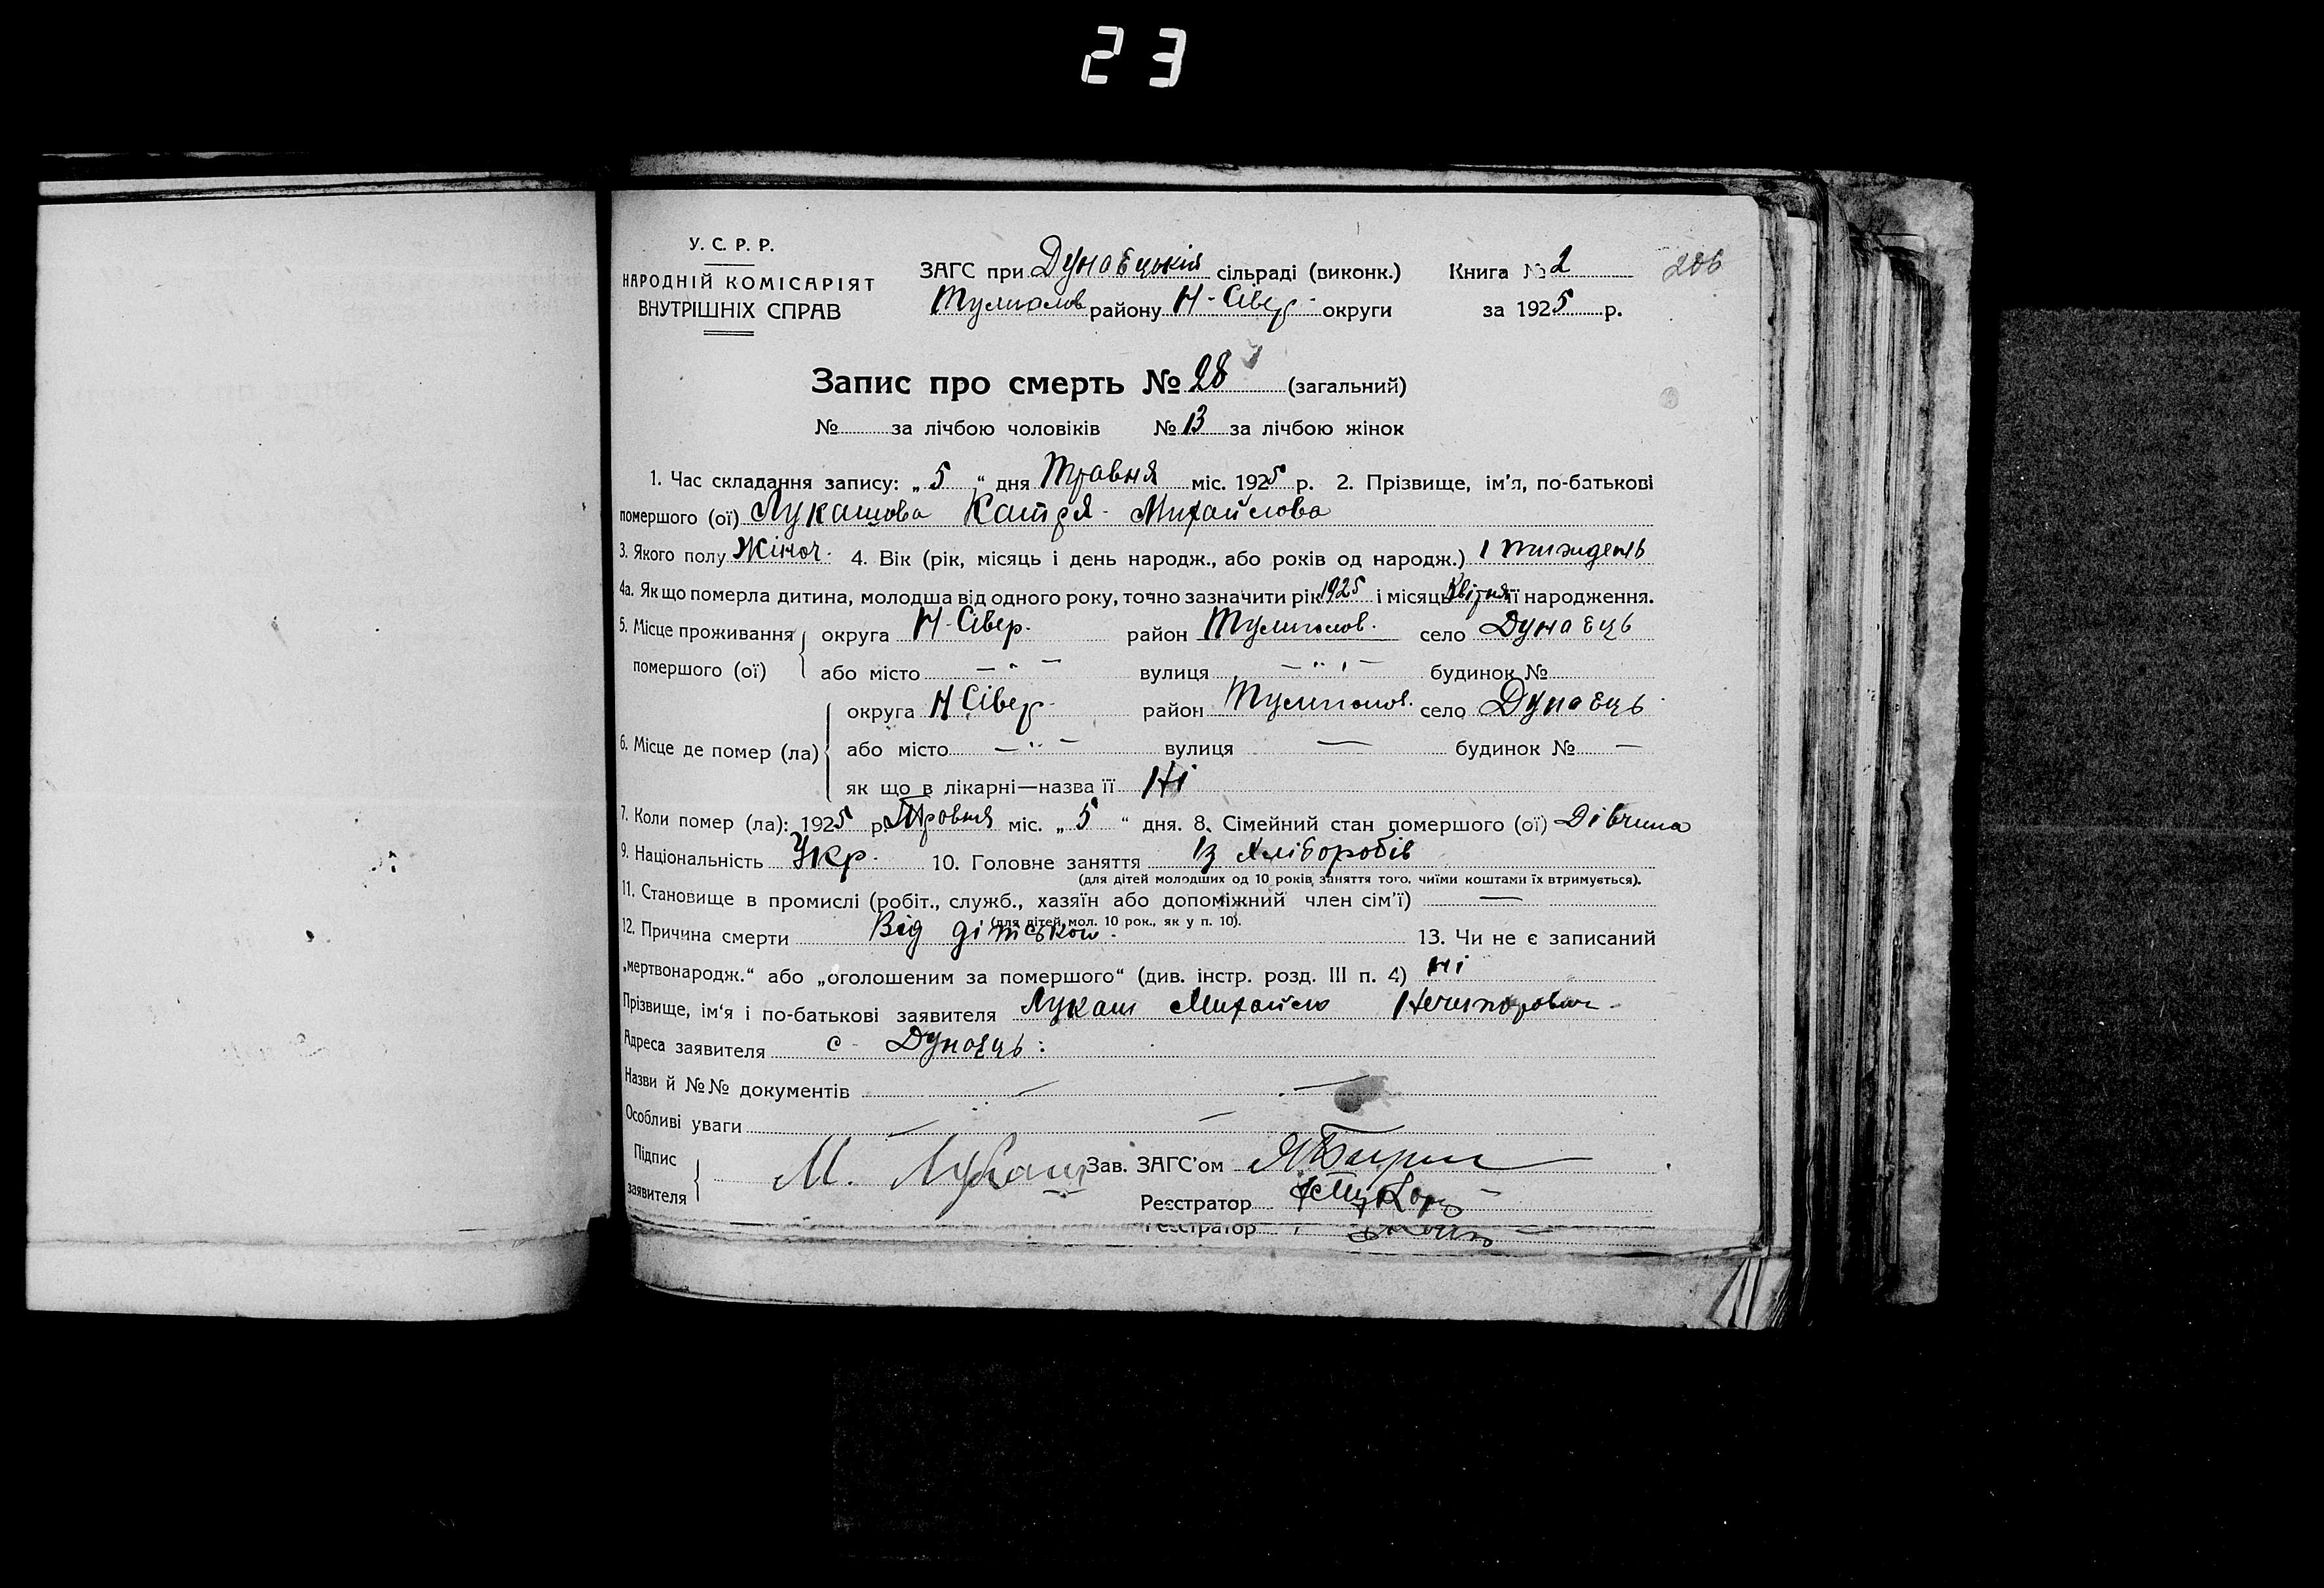 23
У. С. Р. Р.
НАРОДНІЙ КОМІСАРІЯТ
ВНУТРІШНІХ СПРАВ
ЗАГС при Дунаєцькій сільраді (виконк.)
Тулиголов району Н-Сівер- округи
Книга № 2
за 1925 р.
206
Запис про смерть № 28 (загальний)
№ за лічбою чоловіків № 13 за лічбою жінок
1. Час складання запису: „ 5 “ дня Травня міс. 1925 р. 2. Прізвище, ім'я, по-батькові
помершого (ої) Лукашова Катря Михайлова
3. Якого полу Жіноч. 4. Вік (рік, місяць і день народж., або років од народж.) 1 тиждень
4а. Як що померла дитина, молодша від одного року, точно зазначити рік 1925 і місяць Квітня її народження.
5. Місце проживання округа Н-Сівер. район Тулиголов. село Дунаєць
помершого (ої) або місто — " — вулиця — " — будинок №
округа Н Сівер. район Тулиголов. село Дунаєць
6. Місце де помер (ла) або місто — " — вулиця — будинок № —
як що в лікарні—назва її Ні
7. Коли помер (ла): 1925 р. Травня міс. „ 5 “ дня. 8. Сімейний стан помершого (ої) Дівчина
9. Національність Укр. 10. Головне заняття Із Хліборобів
(для дітей молодших од 10 років, заняття того, чиїми коштами їх втримується).
11. Становище в промислі (робіт., служб., хазяїн або допоміжний член сім'ї) —
(для дітей мол. 10 рок., як у п. 10).
12. Причина смерти Від дітськой. 13. Чи не є записаний
„мертвонародж.“ або „оголошеним за помершого“ (див. інстр. розд. III п. 4) Ні
Прізвище, ім'я і по-батькові заявителя Лукаш Михайло Нечипорович
Адреса заявителя с- Дунаєць:
Назви й №№ документів — —
Особливі уваги — —
Підпис
заявителя М. Лукаш
Зав. ЗАГС'ом
Реєстратор
Реєстратор